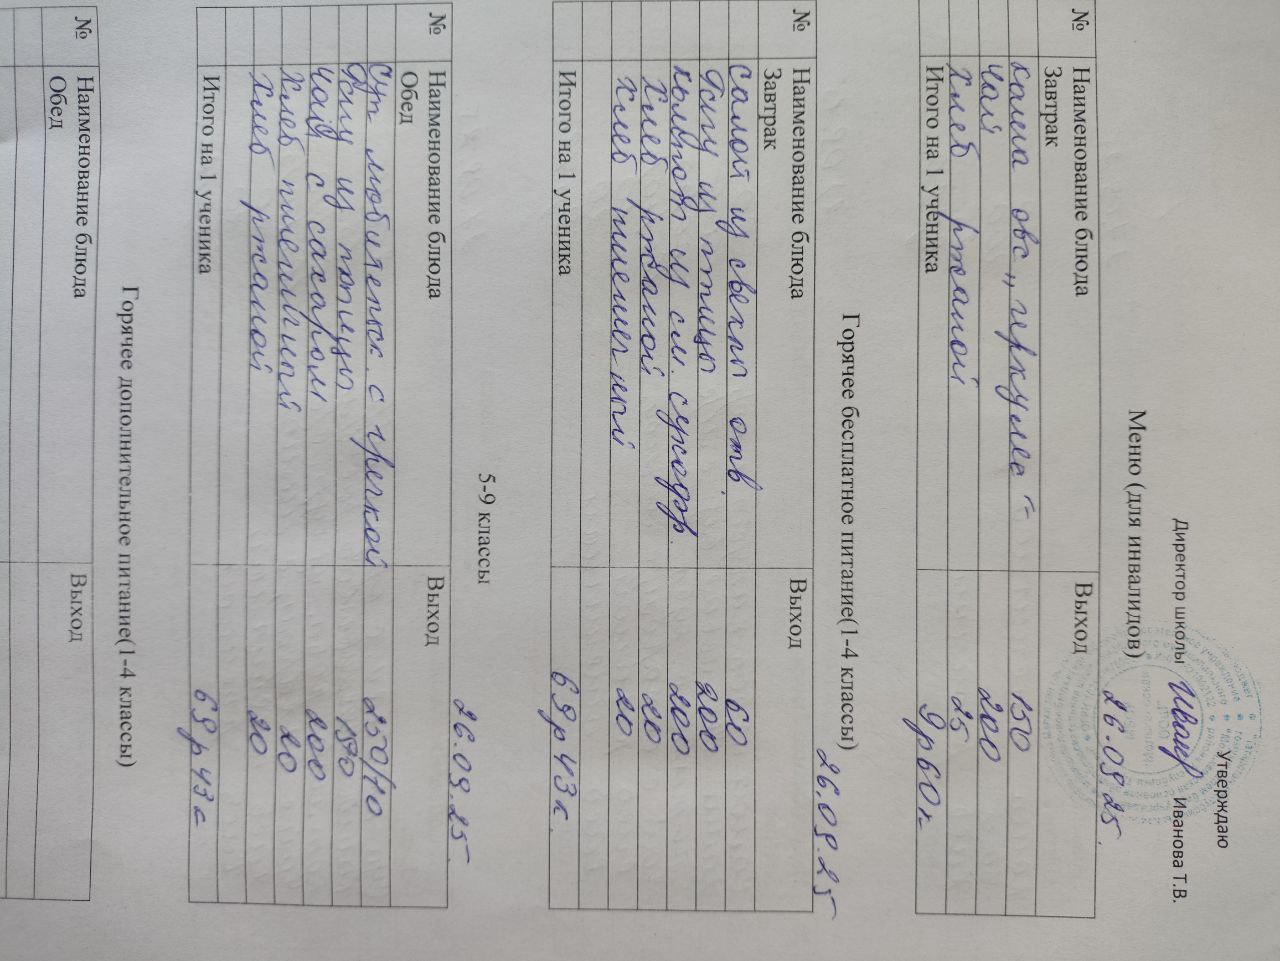 Утверждаю
Директор школы Иванова Т.В.
26.09.25.
Меню (для инвалидов)
№ Наименование блюда Выход
Завтрак
каша овс „геркулес“ 150
чай 200
хлеб ржаной 25
Итого на 1 ученика 9р60к
Горячее бесплатное питание(1-4 классы)
26.09.25
№ Наименование блюда Выход
Завтрак
салат из свеклы отв. 60
рагу из птицы 200
компот из см. сухофр. 200
хлеб ржаной 20
хлеб пшеничный 20
Итого на 1 ученика 69р43к.
5-9 классы
26.09.25.
№ Наименование блюда Выход
Обед
Суп любительск. с гречкой 250/10
рагу из птицы 150
чай с сахаром 200
хлеб пшеничный 20
хлеб ржаной 20
Итого на 1 ученика 69р43к
Горячее дополнительное питание(1-4 классы)
№ Наименование блюда Выход
Обед